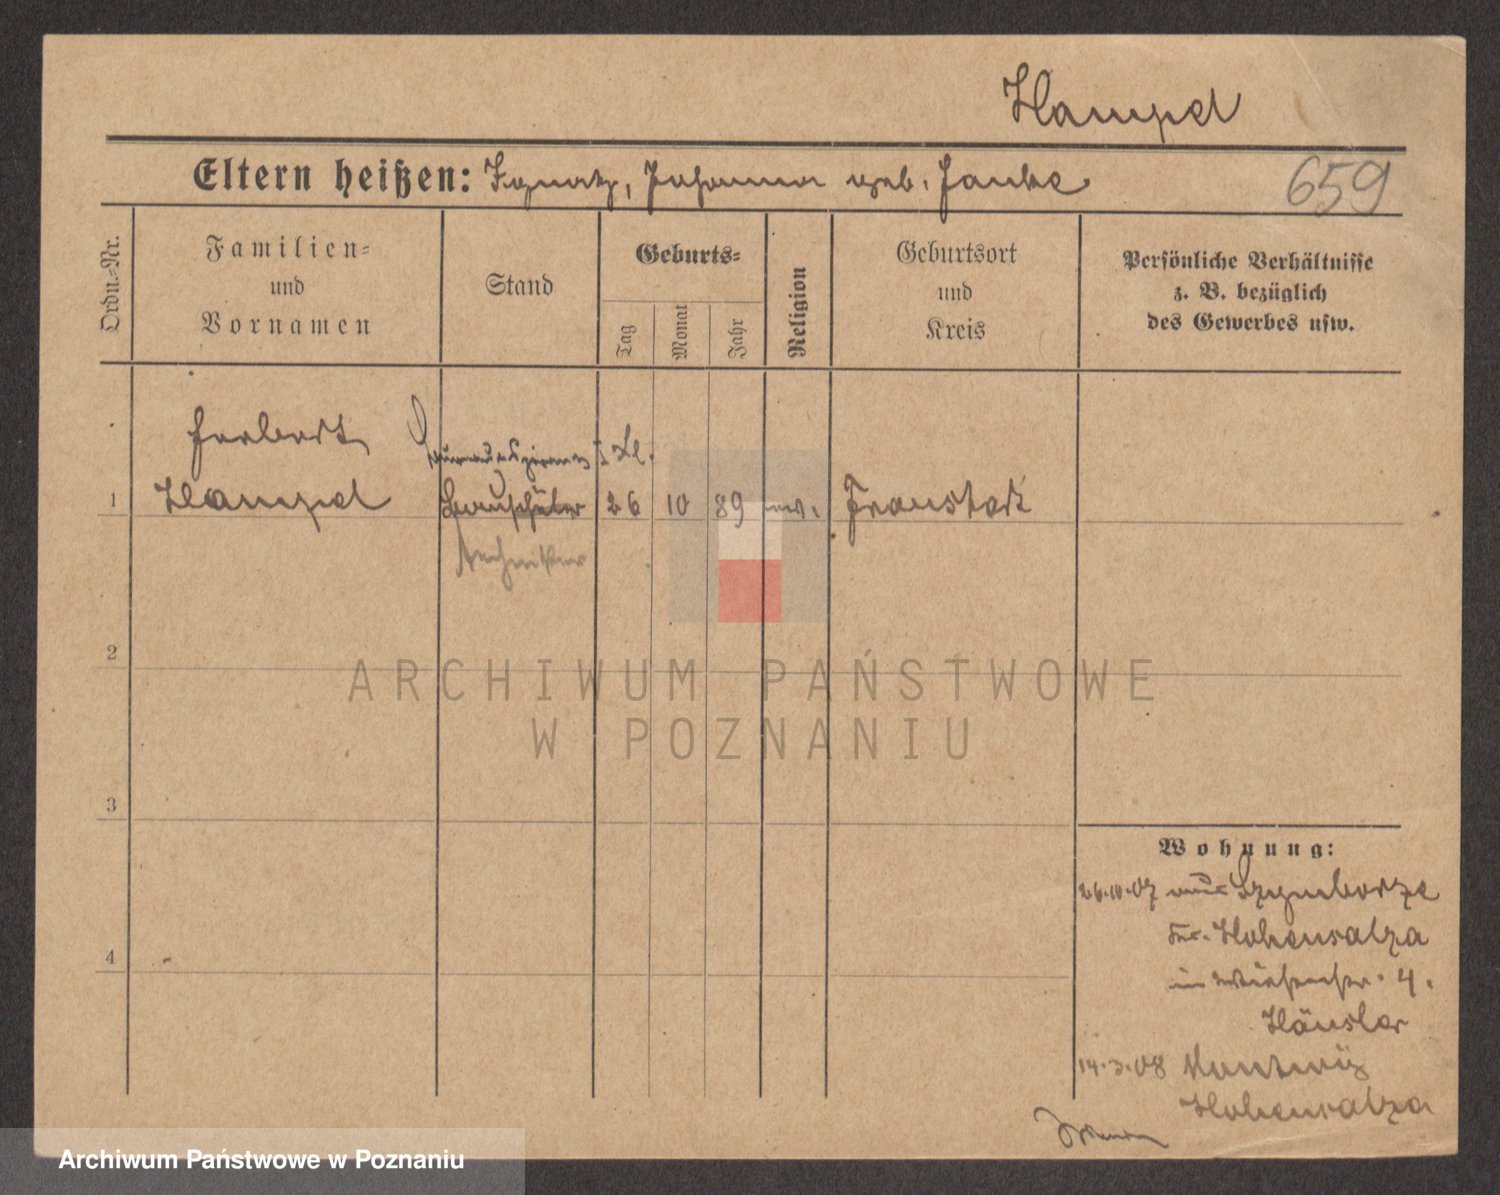 Hampel
Eltern heißen: Ignatz, Johanna geb. Janke
659
Ordn.-Nr.
Familien-
und
Vornamen
Stand
Geburts-
Tag
Monat
Jahr
Religion
Geburtsort
und
Kreis
Persönliche Verhältnisse
z. B. bezüglich
des Gewerbes usw.
Herbert
I Kl.
1 Hampel Bauschüler 26 10 89 ev. Fraustadt
Techniker
2
ARCHIWUM PAŃSTWOWE
W POZNANIU
3
Wohnung:
26.10.07 aus Szymborze
Kr. Hohensalza
4.
4
Häusler
14.3.08
Hohensalza
Archiwum Państwowe w Poznaniu